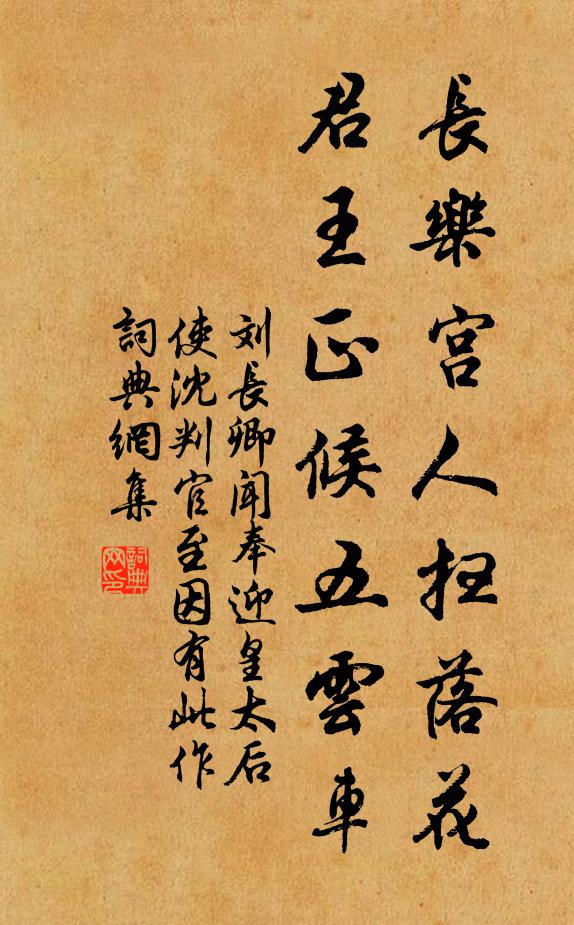 長樂宮人扫落花
君王正候五雲車
刘長卿闻奉迎皇太后
使沈判官至因有此作
詞典網集
詞典
网印